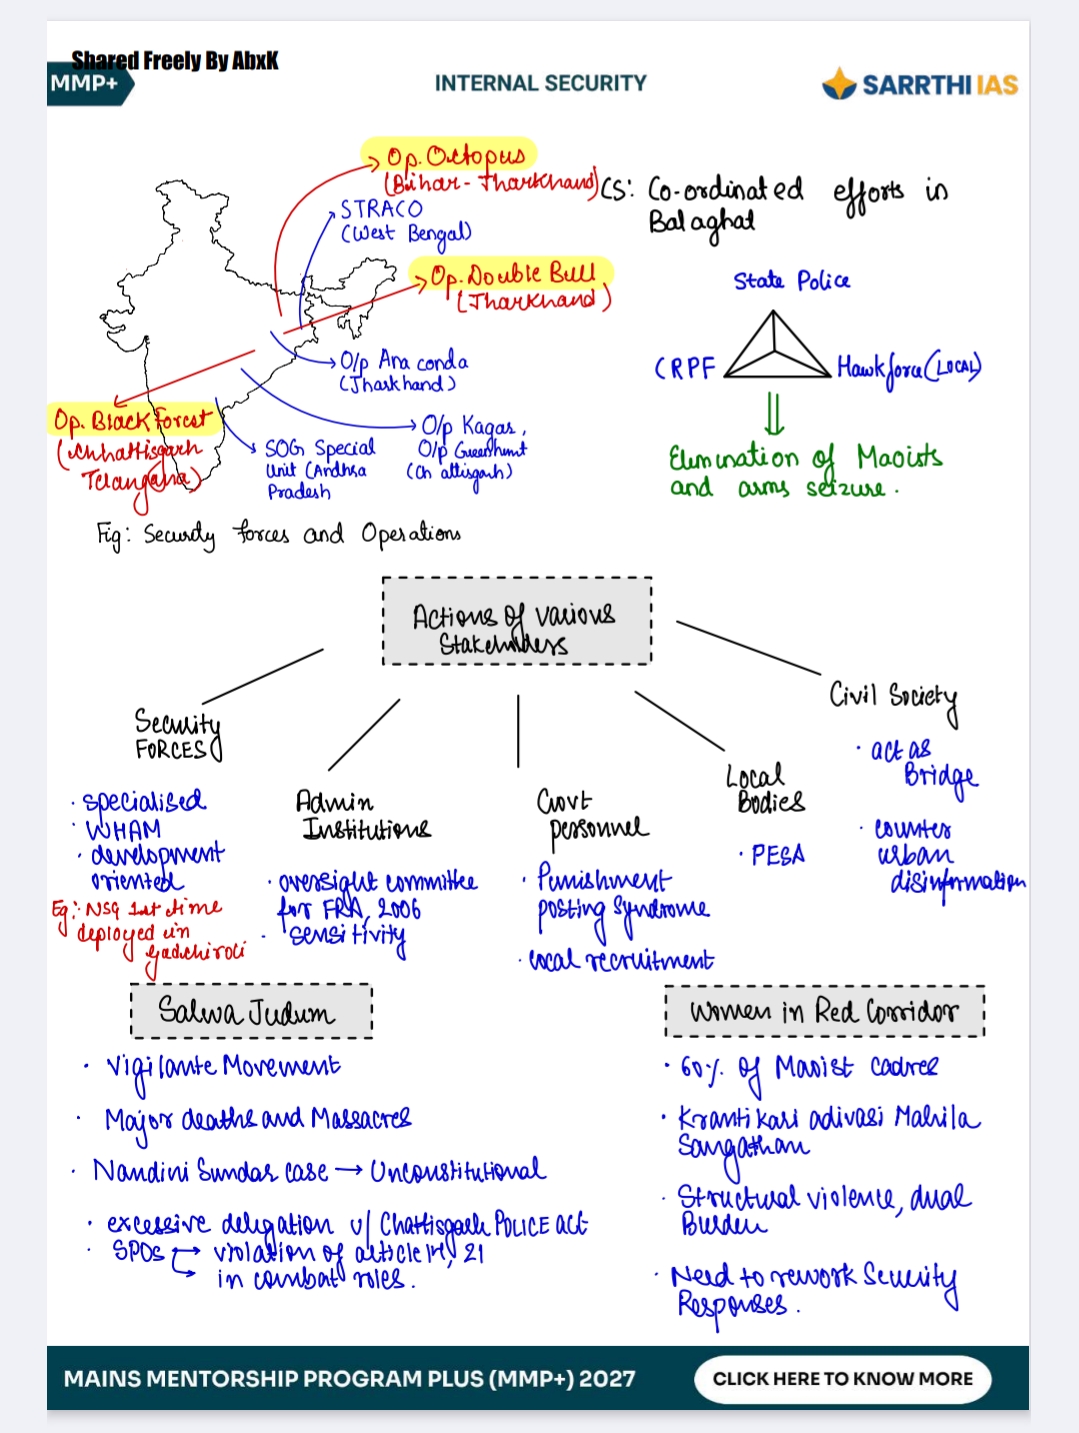 Shared Freely By AbxK
MMP+
INTERNAL SECURITY
SARRTHI IAS
Op. Octopus
(Bihar - Jharkhand)
STRACO
(West Bengal)
Op. Double Bull
(Jharkhand)
O/p Anaconda
(Jharkhand)
Op. Black Forest
(Chhattisgarh
Telangana)
SOG Special
Unit (Andhra
Pradesh
O/p Kagar,
O/p Greenhunt
(Chattisgarh)
Fig: Security forces and Operations
CS: Co-ordinated efforts in
Balaghat
State Police
CRPF
Hawkforce (LOCAL)
Elimination of Maoists
and arms seizure.
Actions of various
Stakeholders
Security
FORCES
· specialised
· WHAM
· development
oriented
Eg: NSG 1st time
deployed in
Gadchiroli
Admin
Institutions
· oversight committee
for FRA, 2006
· sensitivity
Govt
personnel
· Punishment
posting Syndrome
· local recruitment
Local
Bodies
· PESA
Civil Society
· act as
Bridge
· counter
urban
disinformation
Salwa Judum
· Vigilante Movement
· Major deaths and Massacres
· Nandini Sundar case → Unconstitutional
· excessive delegation u/ Chattisgarh POLICE act
· SPOs → violation of article 14, 21
→ in combat roles.
Women in Red Corridor
· 60% of Maoist cadres
· Krantikari adivasi Mahila
Sangathan
· Structural violence, dual
Burden
· Need to rework Security
Responses.
MAINS MENTORSHIP PROGRAM PLUS (MMP+) 2027
CLICK HERE TO KNOW MORE